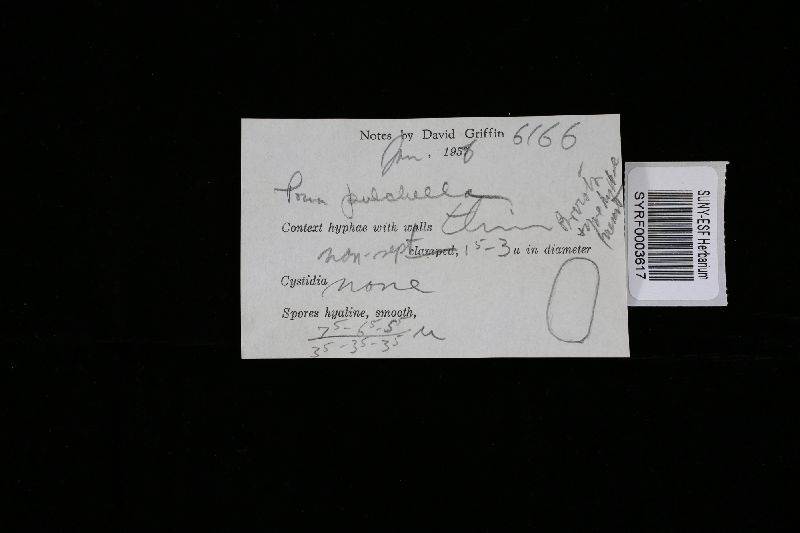 Notes by David Griffin 6166
Jan. 1956
Poria pulchella
Context hyphae with walls thin
non-sept clamped, 1⁵-3 u in diameter
Cystidia none
Spores hyaline, smooth,
7⁵-6⁵-5⁵ u
3⁵-3⁵-3⁵
SUNY-ESF Herbarium
SYRF0003617